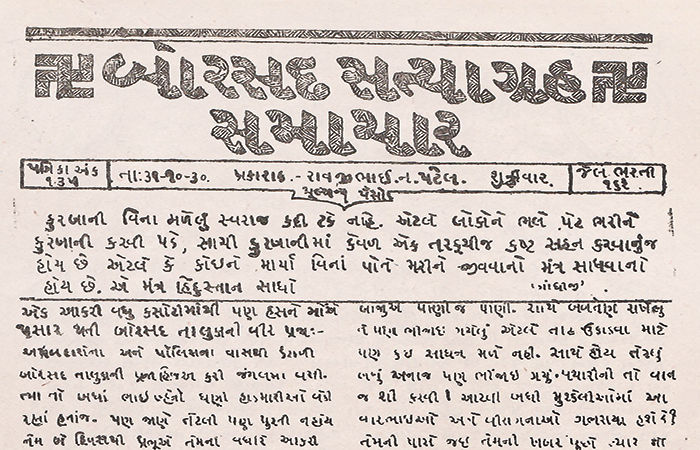 બોરસદ સત્યાગ્રહ
સમાચાર
પત્રિકા અંક
૧૩૫
તા: ૩૧-૧૦-૩૦. પ્રકાશક:- રાવજીભાઈ. ન. પટેલ. શુક્રવાર.
જેલ ભરતી
૧૬૨
મૂલ્ય ૧ પૈસો
કુરબાની વિના મળેલું સ્વરાજ કદી ટકે નહિ. એટલે લોકોને ભલે પેટ ભરીને
કુરબાની કરવી પડે, સાચી કુરબાનીમાં કેવળ એક તરફથીજ કષ્ટ સહન કરવાનુંજ
હોય છે એટલે કે કોઇને માર્યા વિનાં પોતે મરીને જીવવાનો મંત્ર સાધવાનો
હોય છે. એ મંત્ર હિંદુસ્તાન સાધો
ગાંધીજી
એક આકરી વધુ કસોટીમાંથી પણ હસને મોંએ
પસાર થતી બોરસદ તાલુકાની વીર પ્રજા:-
અમલદારોના અને પોલિસના ત્રાસથી કંટાળી
બોરસદ તાલુકાની પ્રજા હિજરત કરી જંગલમા વસી.
ત્યા તો બધાં ભાઇ બ્હેનો ઘણી હાડમારીઓ વેઠી
રહ્યાં હતાંજ. પણ જાણે એટલી પણ પુરતી નહોય
તેમ બે દિવસથી પ્રભુએ તેમના વધારે આકરી
બાજુએ પાણીજ પાણી. સાથે બળતણ રાખેલું
તે પણ ભીંજાઇ ગયેલું એટલે તાઢ ઉડાડવા માટે
પણ કઇ સાધન મળે નહી. સાથે હોય તેટલું
બધું અનાજ પણ ભીંજાઇ ગયું. પથારીની તો વાત
જ શી કરવી! આટલી બધી મુશ્કેલીઓમાં આ
વીરભાઇઓ અને વીરાંગનાઓ ગભરાયા હશે કે?
તેમની પાસે જઇ તેમની ખબર પૂછો ત્યારે